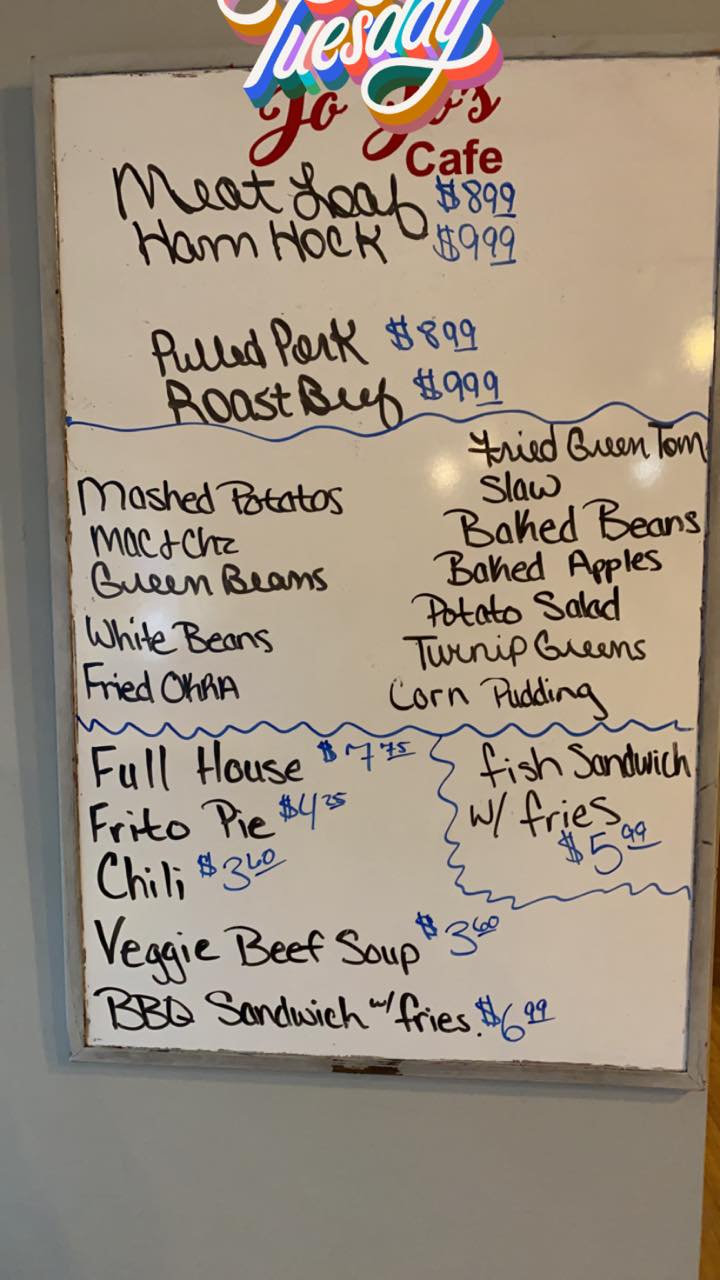 Tuesday
Jo Jo's
Cafe
Meat Loaf $8.99
Ham Hock $9.99
Pulled Pork $8.99
Roast Beef $9.99
Mashed Potatos
Mac & Chz
Green Beans
White Beans
Fried OKRA
Fried Green Tom
Slaw
Baked Beans
Baked Apples
Potato Salad
Turnip Greens
Corn Pudding
Full House $7.75
Frito Pie $4.25
Chili $3.60
fish Sandwich
w/ fries
$5.99
Veggie Beef Soup $3.60
BBQ Sandwich w/ fries. $6.99